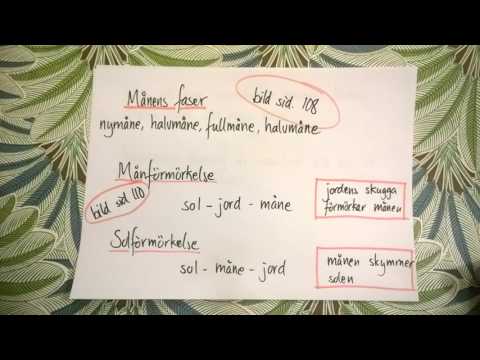 Månens faser
bild sid. 108
nymåne, halvmåne, fullmåne, halvmåne
Månförmörkelse
bild sid 110
sol - jord - måne
jordens skugga
förmörkar månen
Solförmörkelse
sol - måne - jord
månen skymmer
solen